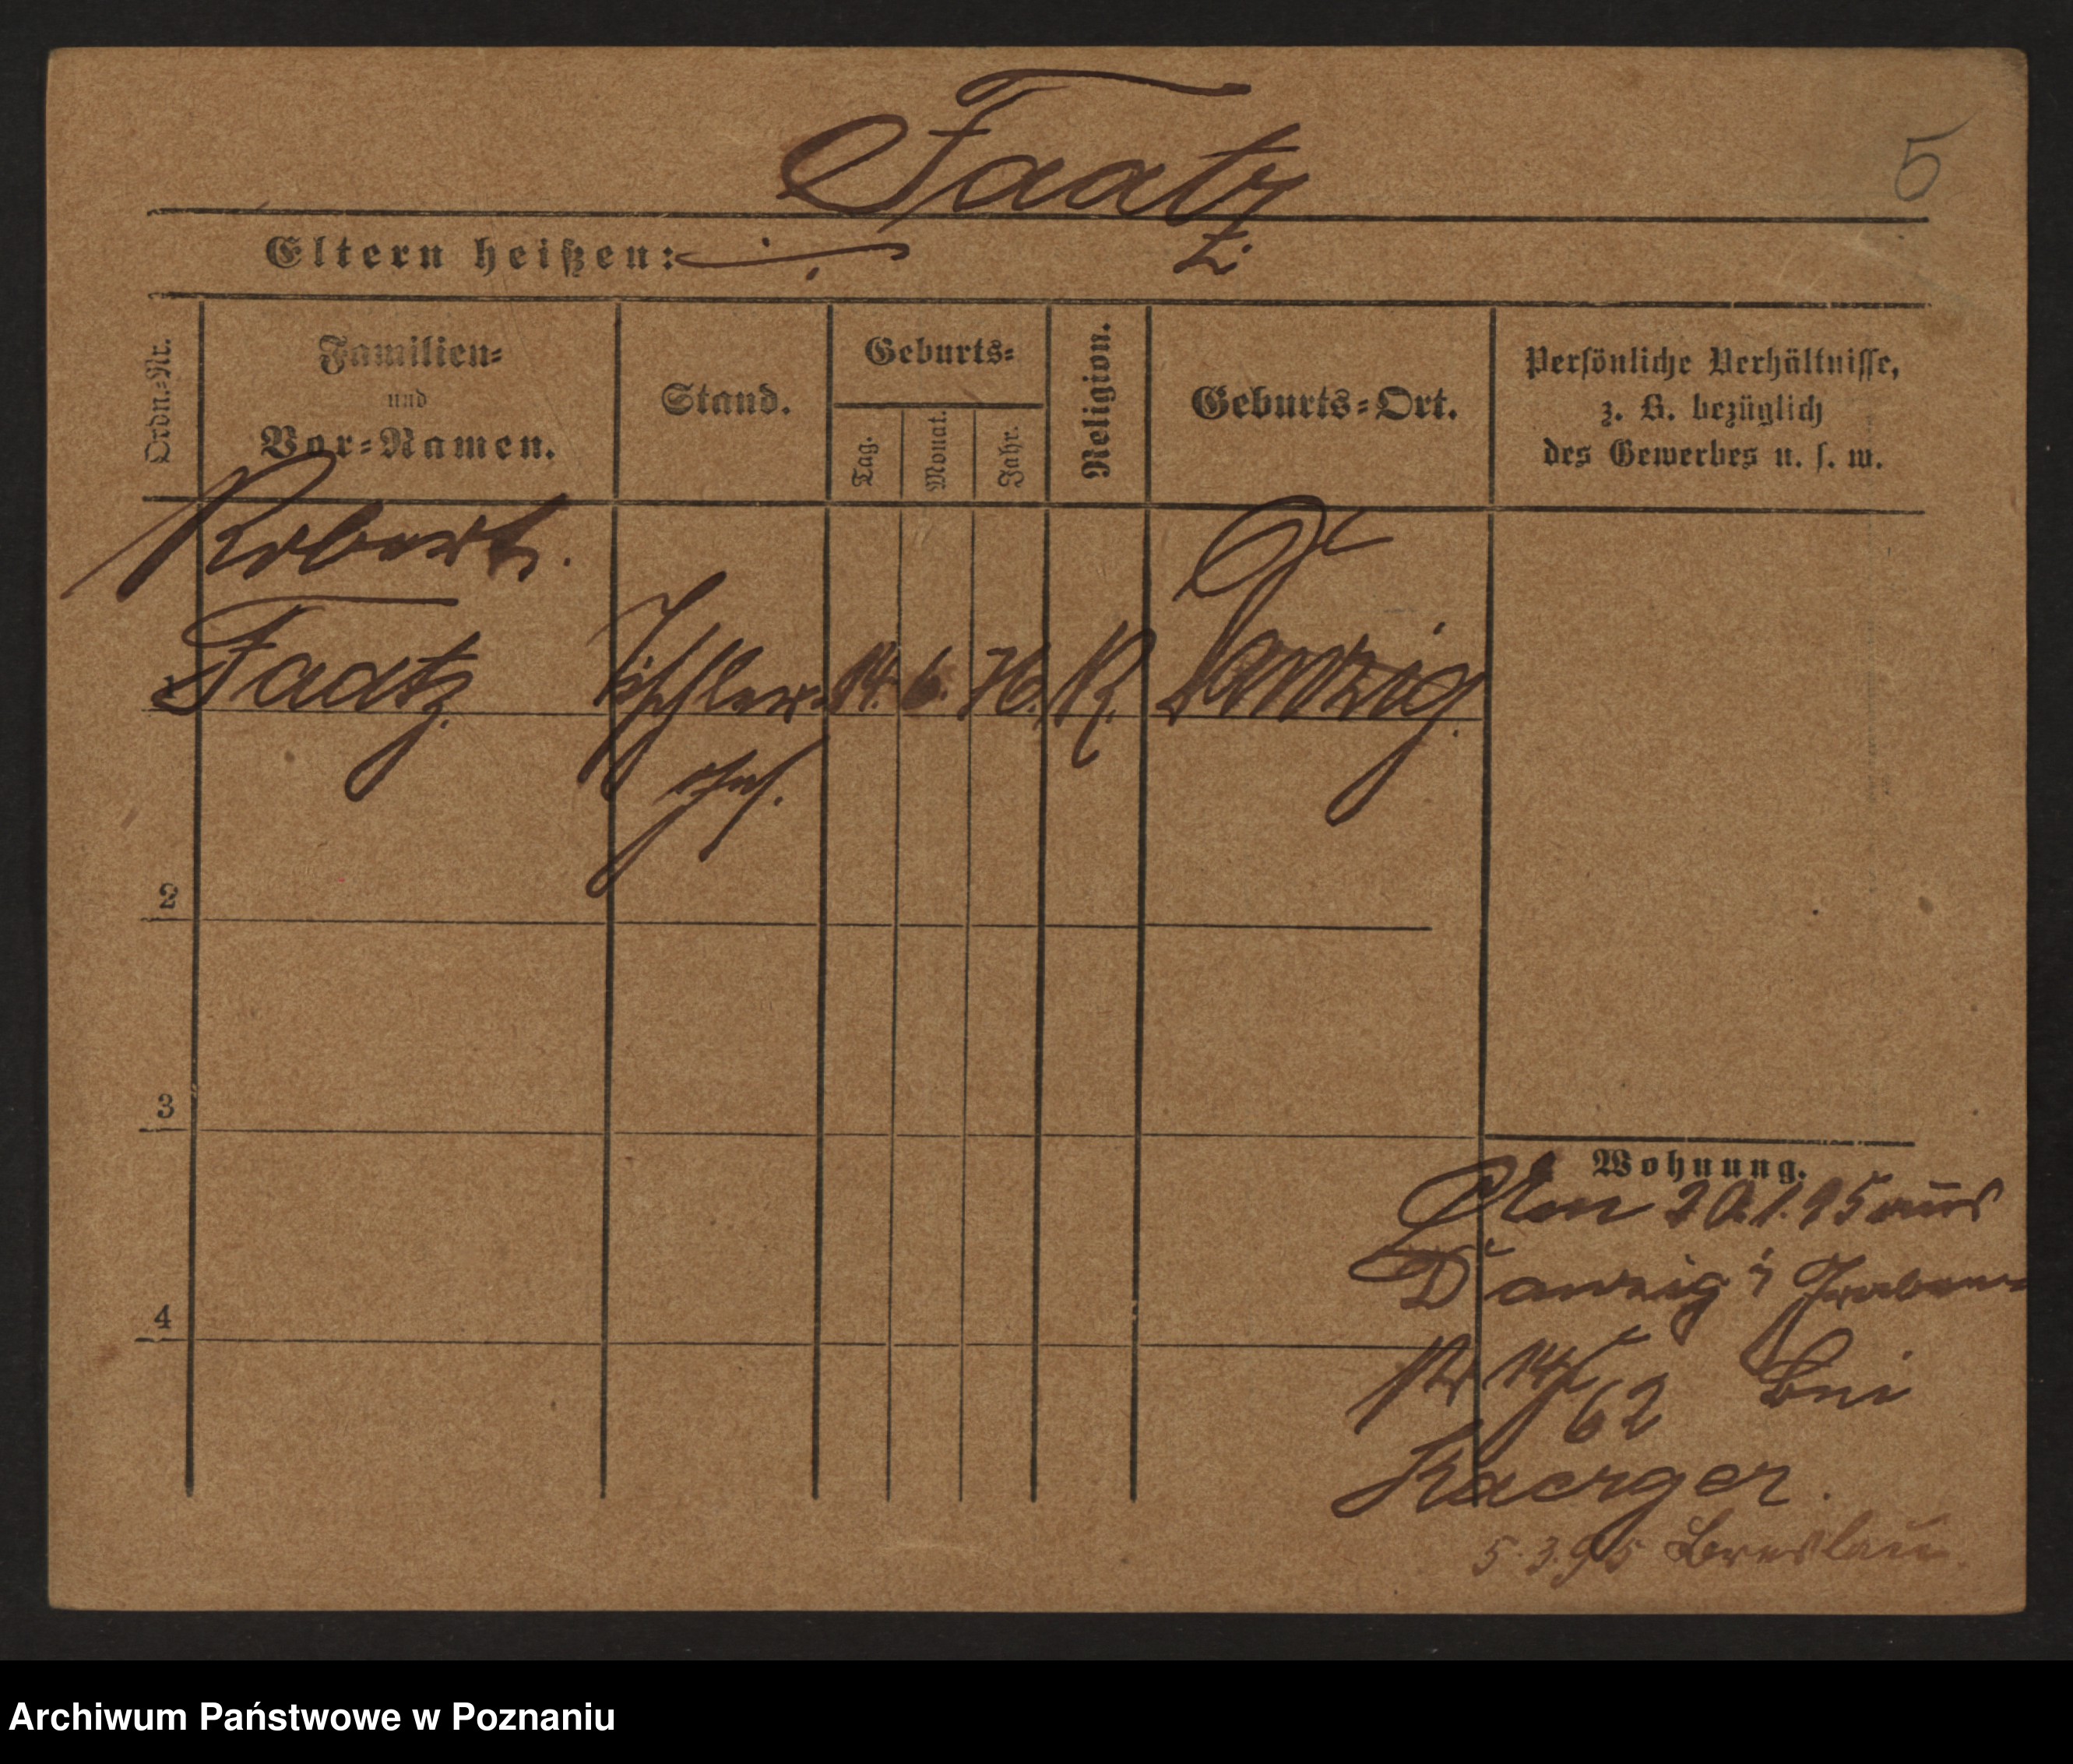 Faatz
5
Eltern heißen:
Ordn.=Nr.
Familien=
und
Vor=Namen.
Stand.
Geburts=
Tag.
Monat.
Jahr.
Religion.
Geburts=Ort.
Persönliche Verhältnisse,
z. B. bezüglich
des Gewerbes u. s. w.
Robert.
Faatz. Tischler= 14. 6. 76. K. Danzig.
1
2
3
4
Wohnung.
20.1.95 aus
Danzig
14 bei
62
Kaerger.
5.3.95 Breslau.
Archiwum Państwowe w Poznaniu